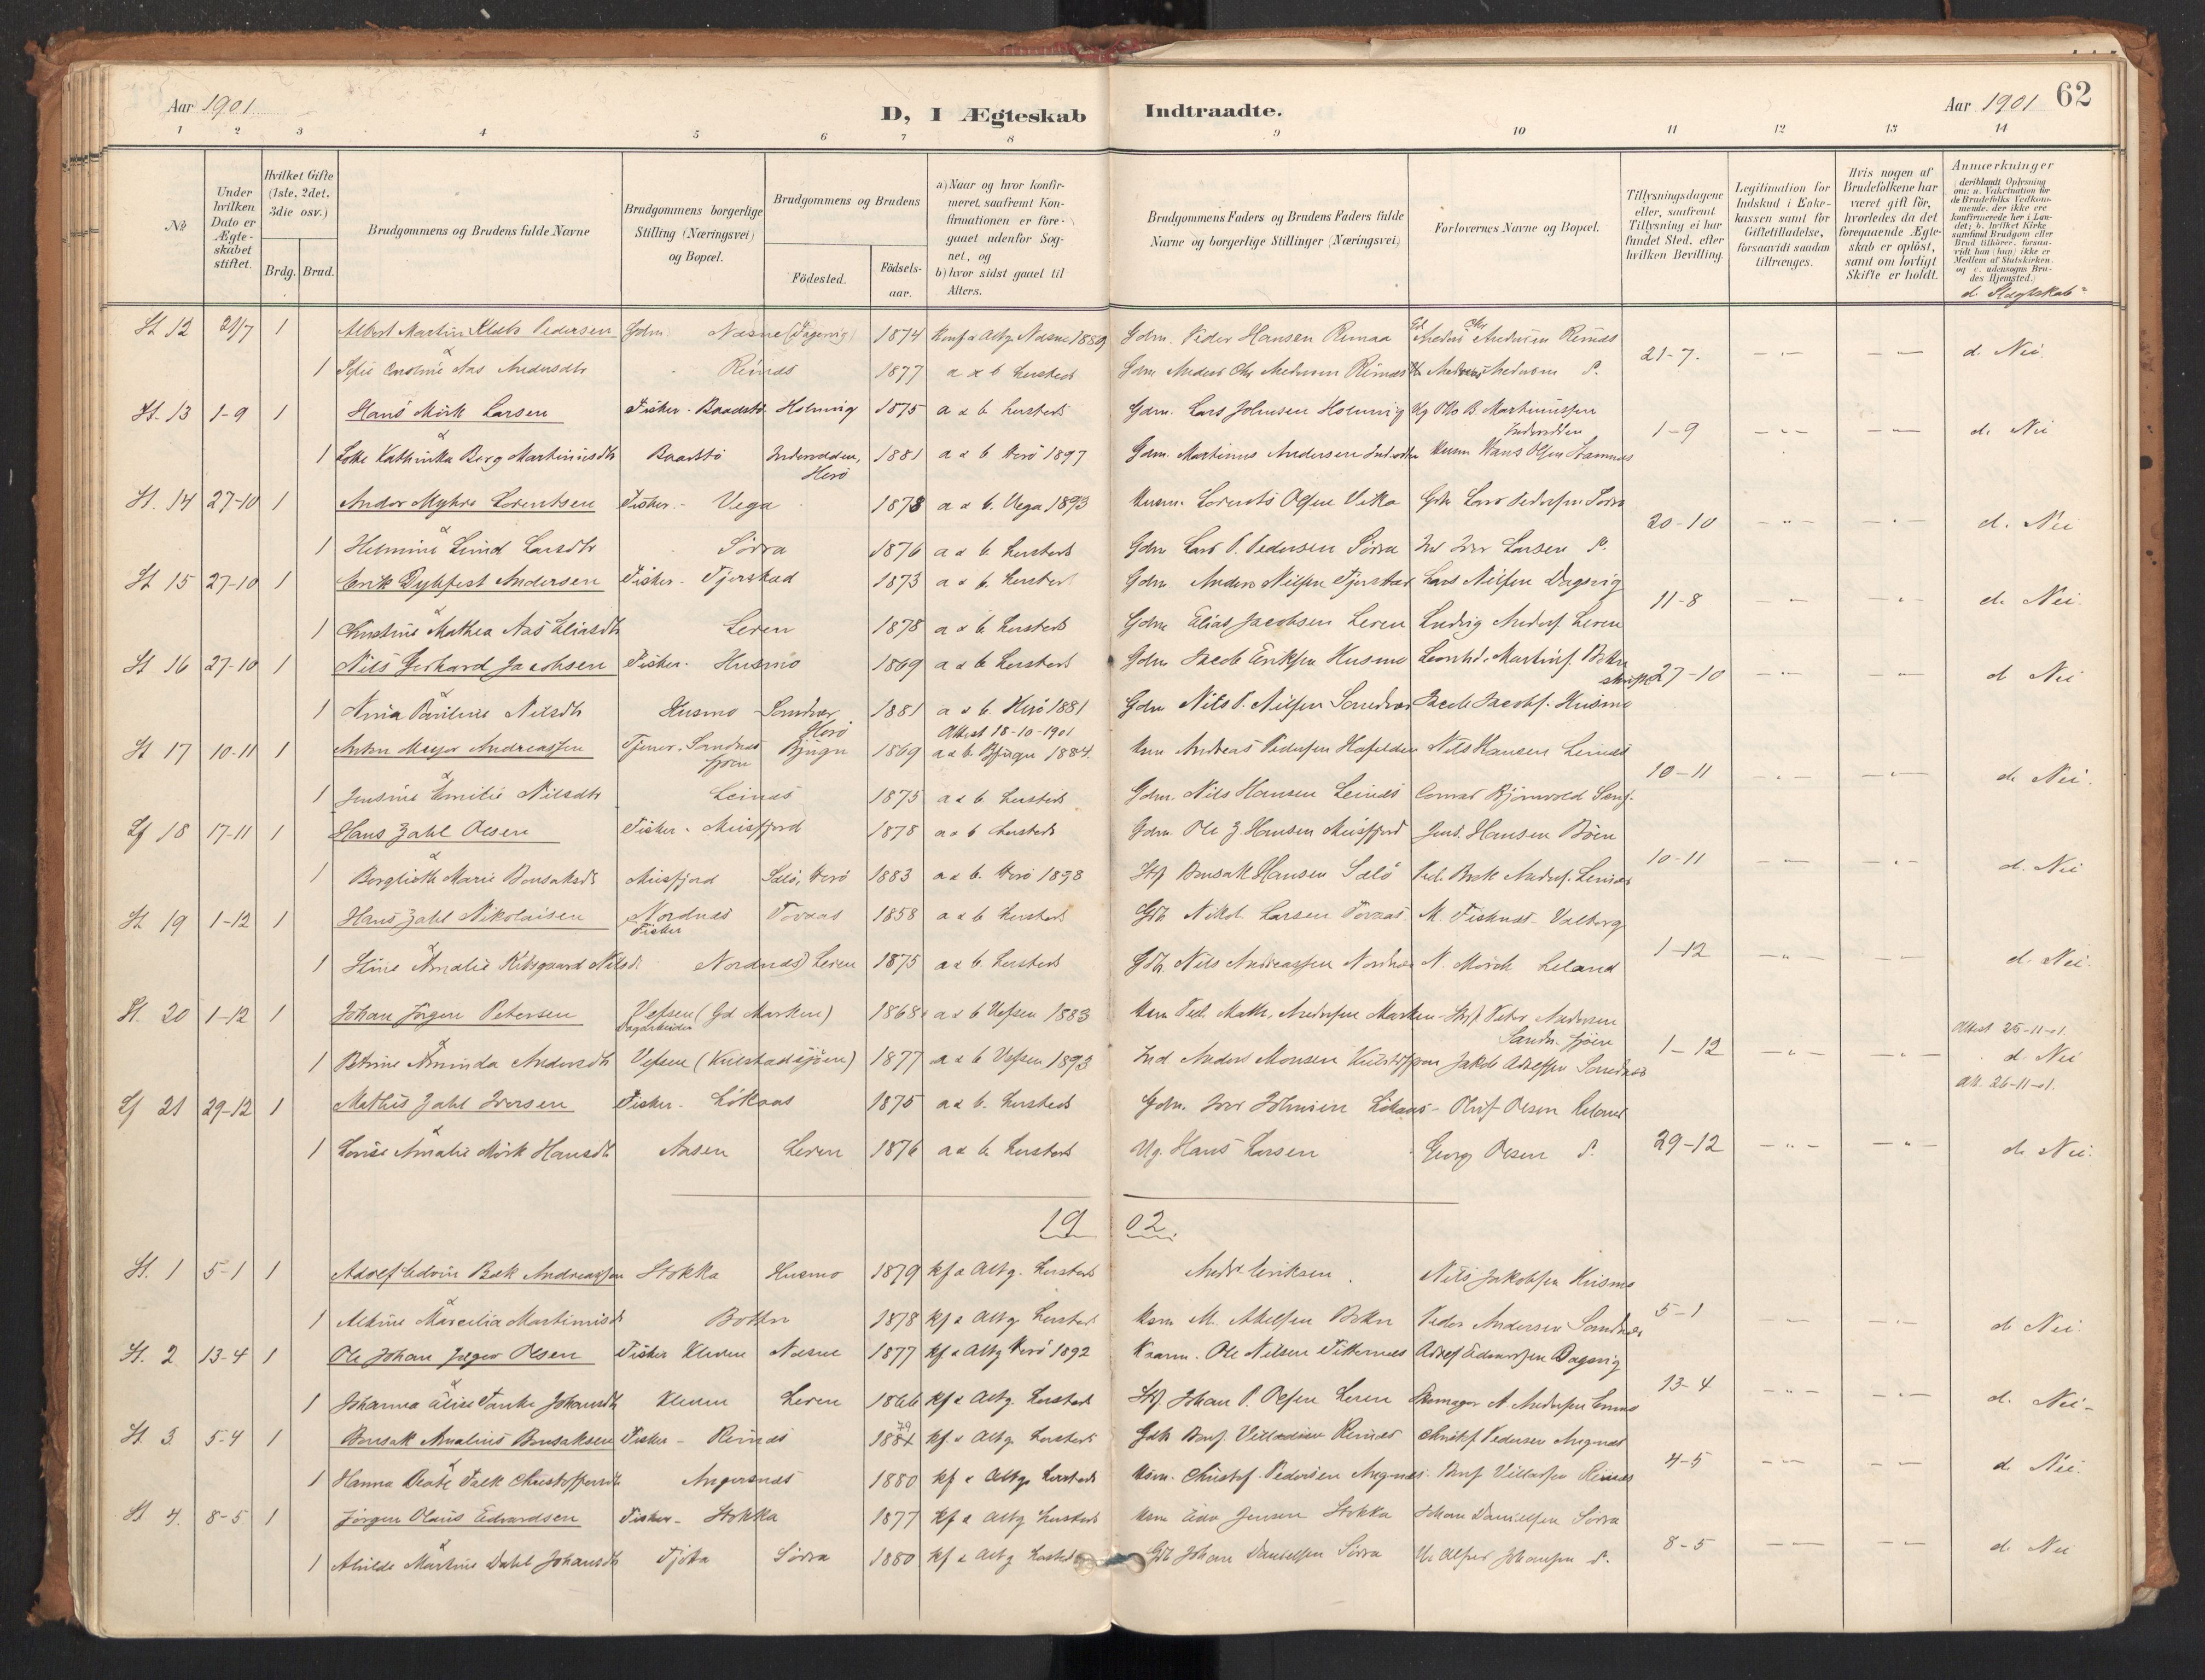 Aar 1901
D, I Ægteskab Indtraadte.
Aar 1901 62
1 2 3 4 5 6 7 8 9 10 11 12 13 14
No
Under hvilken Dato er Ægte-skabet stiftet.
Hvilket Gifte (1ste, 2det, 3die osv.)
Brdg. Brud.
Brudgommens og Brudens fulde Navne
Brudgommens borgerlige Stilling (Næringsvei) og Bopæl.
Brudgommens og Brudens
Födested.
Födsels-aar.
a) Naar og hvor konfir-meret, saafremt Kon-firmationen er fore-gaaet udenfor Sog-net, og
b) hvor sidst gaaet til Alters.
Brudgommens Faders og Brudens Faders fulde Navne og borgerlige Stillinger (Næringsvei)
Forlovernes Navne og Bopæl.
Tillysningsdagene eller, saafremt Tillysning ei har fundet Sted, efter hvilken Bevilling.
Legitimation for Indskud i Enke-kassen samt for Giftetilladelse, forsaavidt saadan tiltrænges.
Hvis nogen af Brudefolkene har været gift för, hvorledes da det foregaaende Ægte-skab er oplöst, samt om lovligt Skifte er holdt.
Anmærkninger (deriblandt Oplysning om: a. Vakcination for de Brudefolks Vedkom-mende, der ikke ere konfirmerede her i Lan-det; b. hvilket Kirke samfund Brudgom eller Brud tilhörer, forsaa-vidt han (hun) ikke er Medlem af Statskirken, og c. udensogns Bru-des Hjemsted.)
d. Slægtskab
St 12 21/7 1 Albert Martin Klæbo Pedersen Gdm. Næsne 1874 Konf & Altg. Næsne 1889 Gdm. Peder Hansen Remaa Anders Andersen Reinæs
21-7. d. Nei.
1 Sofie Caroline Aas Andersdtr Reinæs 1877 a & b hersteds Gdm Anders Chr Andersen Reinæs
St. 13 1-9 1 Hans Mörk Larsen Fisker. Baadstö Holmvig 1875 a & b. hersteds Gdm. Lars Johnsen Holmvig Ug Otto B. Martinussen
Inderodden 1-9 d. Nei
1 Lotte Kathinka Berg Martinusdtr Baadstö Inderodden, Herö 1881 a & b Herö 1897 Gdm. Martinus Andersen Husm Hans Olsen Hamnes
St. 14 27-10 1 Andor Myhre Lorentsen Fisker. - Vega 1878 a & b. Vega 1893 Husm. Lorents Olsen Vika Gdb Lars Pedersen Sörra
20-10 d. Nei
1 Helmine Lund Larsdtr Sörra 1876 a & b. hersteds Gdm Lars P. Pedersen Sörra Iver Larsen S.
St 15 27-10 1 Erik Dybfest Andersen Fisker - Tjerstad 1873 a & b. hersteds Gdm Anders Nilsen Tjerstad Lars Nilsen Dagsvig
11-8 d. Nei.
1 Kristine Mathea Aas Eliasdtr Leren 1878 a & b. hersteds Gdm Elias Jacobsen Leren Ludvig Anders. Leren
St 16 27-10 1 Nils Gerhard Jacobsen Fisker. Husmo 1869 a & b hersteds Gdm Jacob Eriksen Husmo Leonhd. Martins. Botn
27-10 d. Nei
1 Anna Pauline Nilsdtr Husmo Sandvær Herö 1881 a & b. Herö 1881 Gdm Nils P. Nilsen Sandvær Jacob Jacobs. Husmo
Attest 18-10-1901
St 17 10-11 1 Anton Meyer Andreassen Tjener. Sandnessjöen Bjugn 1869 a & b. Bjugn 1884. Husm Andreas Pedersen Nils Hansen Leines
10-11 d. Nei.
1 Jensine Emilie Nilsdtr Leinæs 1875 a & b. hersteds Gdm. Nils Hansen Leinæs Conrad Björnvold
Lf 18 17-11 1 Hans Zahl Olsen Fisker. Meisfjord 1878 a & b hersteds Gdm. Ole Z. Hansen Meisfjord Jens. Hansen Böen
10-11 d. Nei
1 Borglioth Marie Bensaksdtr Meisfjord Sælö, Herö 1883 a & b. Herö 1898 Bensak Hansen Sælö
St 19 1-12 1 Hans Zahl Nikolaisen Nordnæs Fisker Tovaas 1858 a & b hersteds Gdb. Nikol. Larsen Tovaas. M. Fisknes - Valberg
1-12 d. Nei.
1 Stine Amalie Kibsgaard Nilsdtr Nordnæs Leren 1875 a & b. hersteds Gdb Nils Andreassen Nordnæs N. Mörch Leland
St. 20 1-12 1 Johan Jörgen Petersen Vefsen (Gd Marken) Dagarbeider 1868 a & b Vefsen 1883 Husm Ped. Math. Andersen Marken - Peder Andersen
Sandn. sjöen Attest 25-11-01.
1-12 d. Nei
1 Petrine Aminda Andersdtr Vefsen (Kulstadsjöen) 1877 a & b Vefsen 1893 Ind Anders Monsen Kulstadsjöen Jakob Adolfsen Sandnes
Att. 26-11-01.
Lf 21 29-12 1 Mathis Zahl Iversen Fisker - Lökaas 1875 a & b. hersteds Gdm. Iver Johnsen Lökaas - Oluf Olsen Leland
29-12 d. Nei.
1 Lovise Amalie Mörk Hansdtr Aasen Leren 1876 a & b. hersteds Ug. Hans Larsen Georg Olsen S.
1902.
St. 1 5-1 1 Adolf Edvin Bæk Andreassen Stokka Husmo 1879 kf & Altg. hersteds Andr. Eriksen. Nils Jakobsen Husmo
5-1 d. Nei
1 Alvine Marcilia Martinusdtr Botn 1878 kf & Altg hersteds Husm M. Akselsen Botn Peder Andersen Sandnes
St. 2 13-4 1 Ole Johan Jæger Olsen Fisker Kleven Næsne 1877 kf & Altg Herö 1892 Kaarm. Ole Nilsen Adolf Edvardsen Dagsvig
13-4 d. Nei-
1 Johanna Elise Tanke Johansdtr Kleven Leren 1866 kf & Altg. hersteds Johan P. Olsen Leren Skomager A. Andersen
St. 3 5-4 1 Bensak Analius Bensaksen Fisker - Reinæs 1881 79 kf. & Altg. hersteds Gdb Bens. Villadsen Reinæs Christof. Pedersen Angrnæs
4-5 d. Nei.
1 Hanna Beate Falk Christoffersdtr Angersnæs 1880 kf & Altg. hersteds Husm. Christof. Pedersen Angrnæs. Bens Villadsen Reinæs
St 4. 8-5 1 Jörgen Olaus Edvardsen Fisker - Stokka 1877 kf & Altg hersteds Husm Edv Jensen Stokka Johan Danielsen Sörra
8-5 d. Nei
1 Alvilde Martine Dahl Johansdtr Tjöta Sörra 1880 kf & Altg hersteds Gdb Johan Danielsen Sörra Alfred Johansen S.